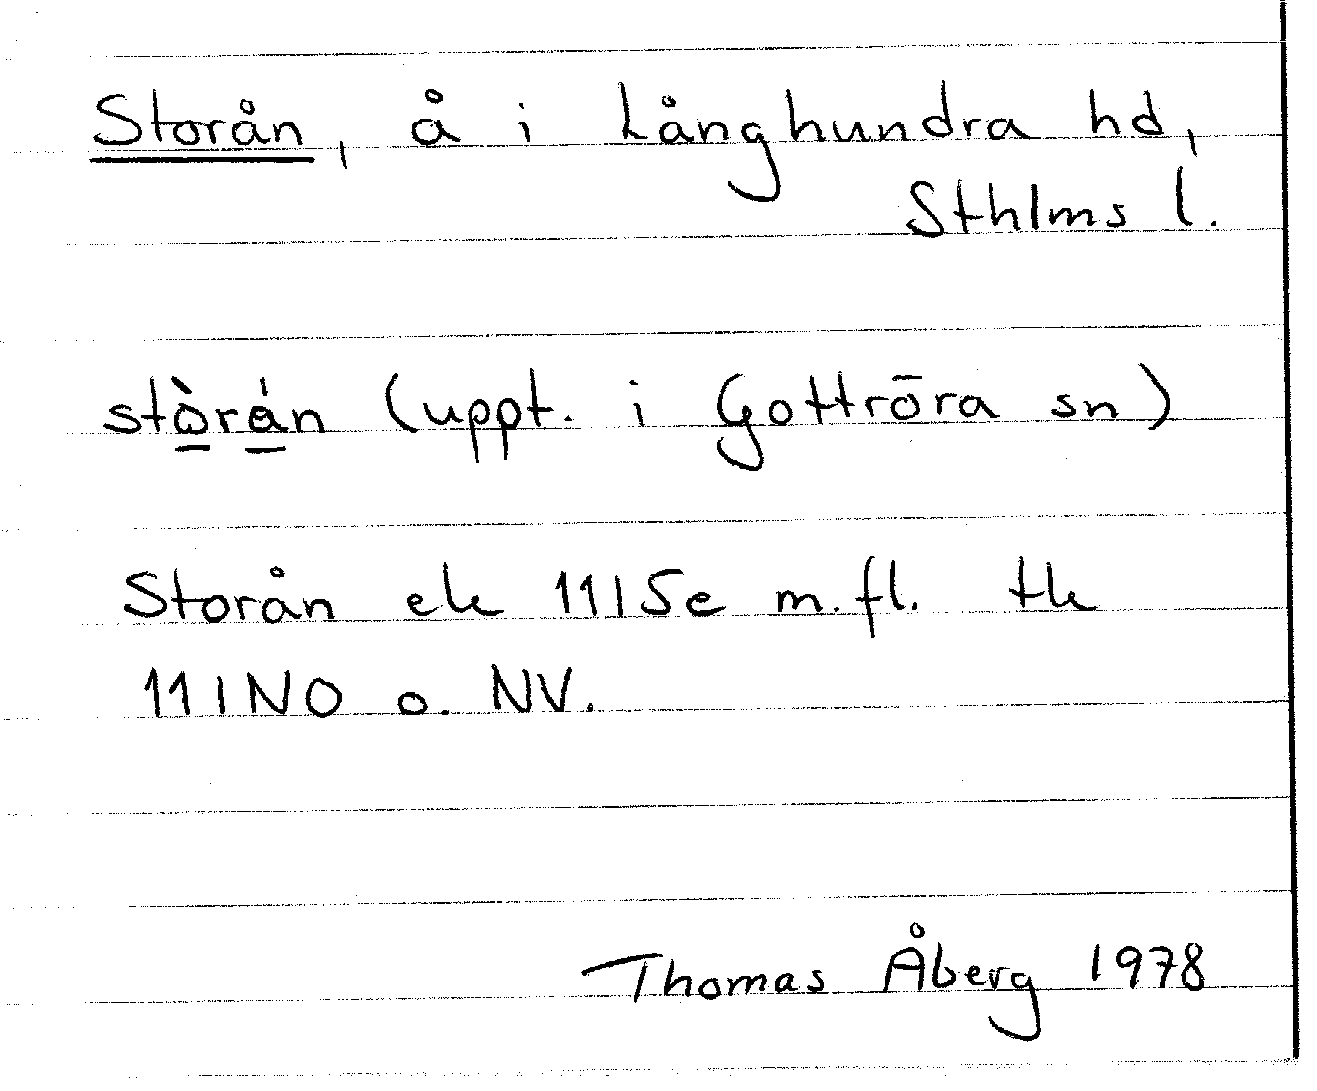 Storån, å i Långhundra hd,
Sthlms l.
stò̱rá̱n (uppt. i Gottröra sn)
Storån ek 11I5e m.fl. tk
11INO o. NV.
Thomas Åberg 1978